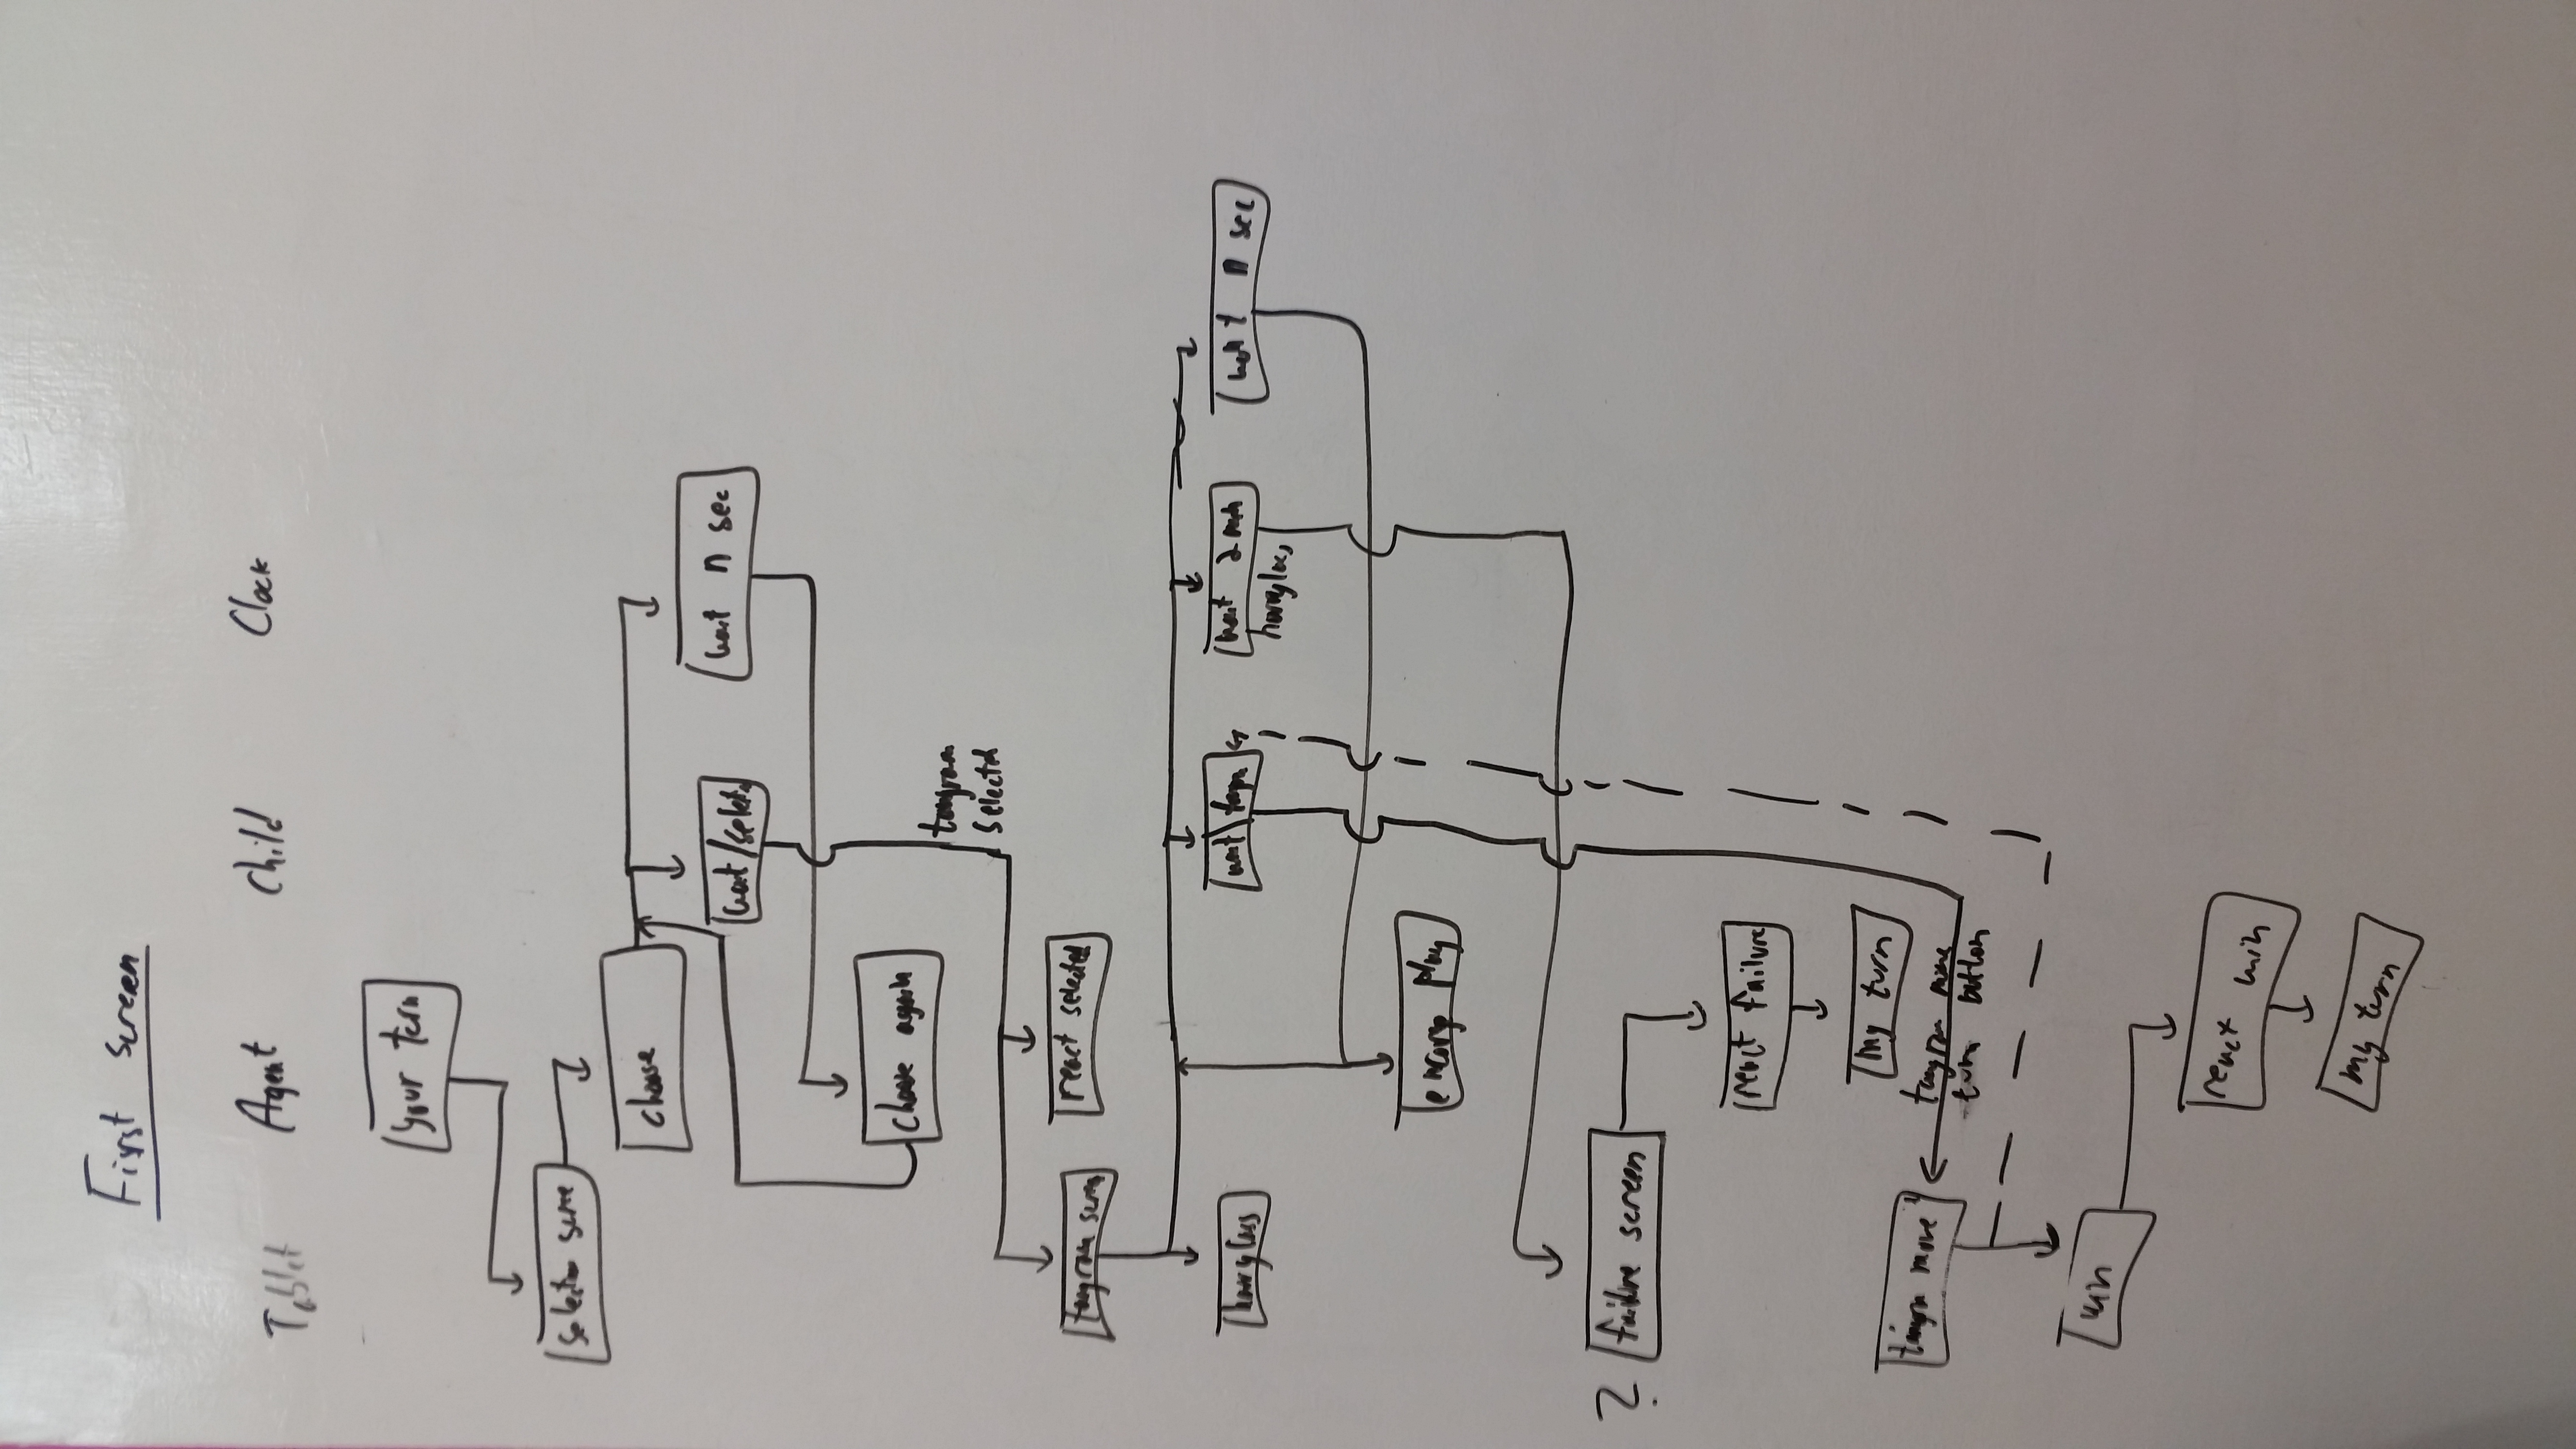 First screen
Tablet Agent Child Clock
your turn
selection scree
choose
wait/select
wait n sec
choose again
tangram
selected
tangram screen
react selected
hourglass
wait
wait 2 min
hourglass
wait n sec
play
? failure screen
react failure
my turn
move
tangram move
turn button
win
react win
my turn